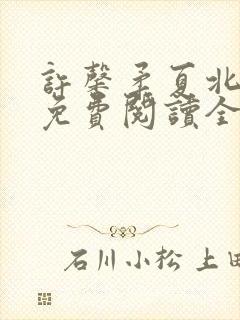 許馨矛夏北
免費閱讀全
石川小松 上田